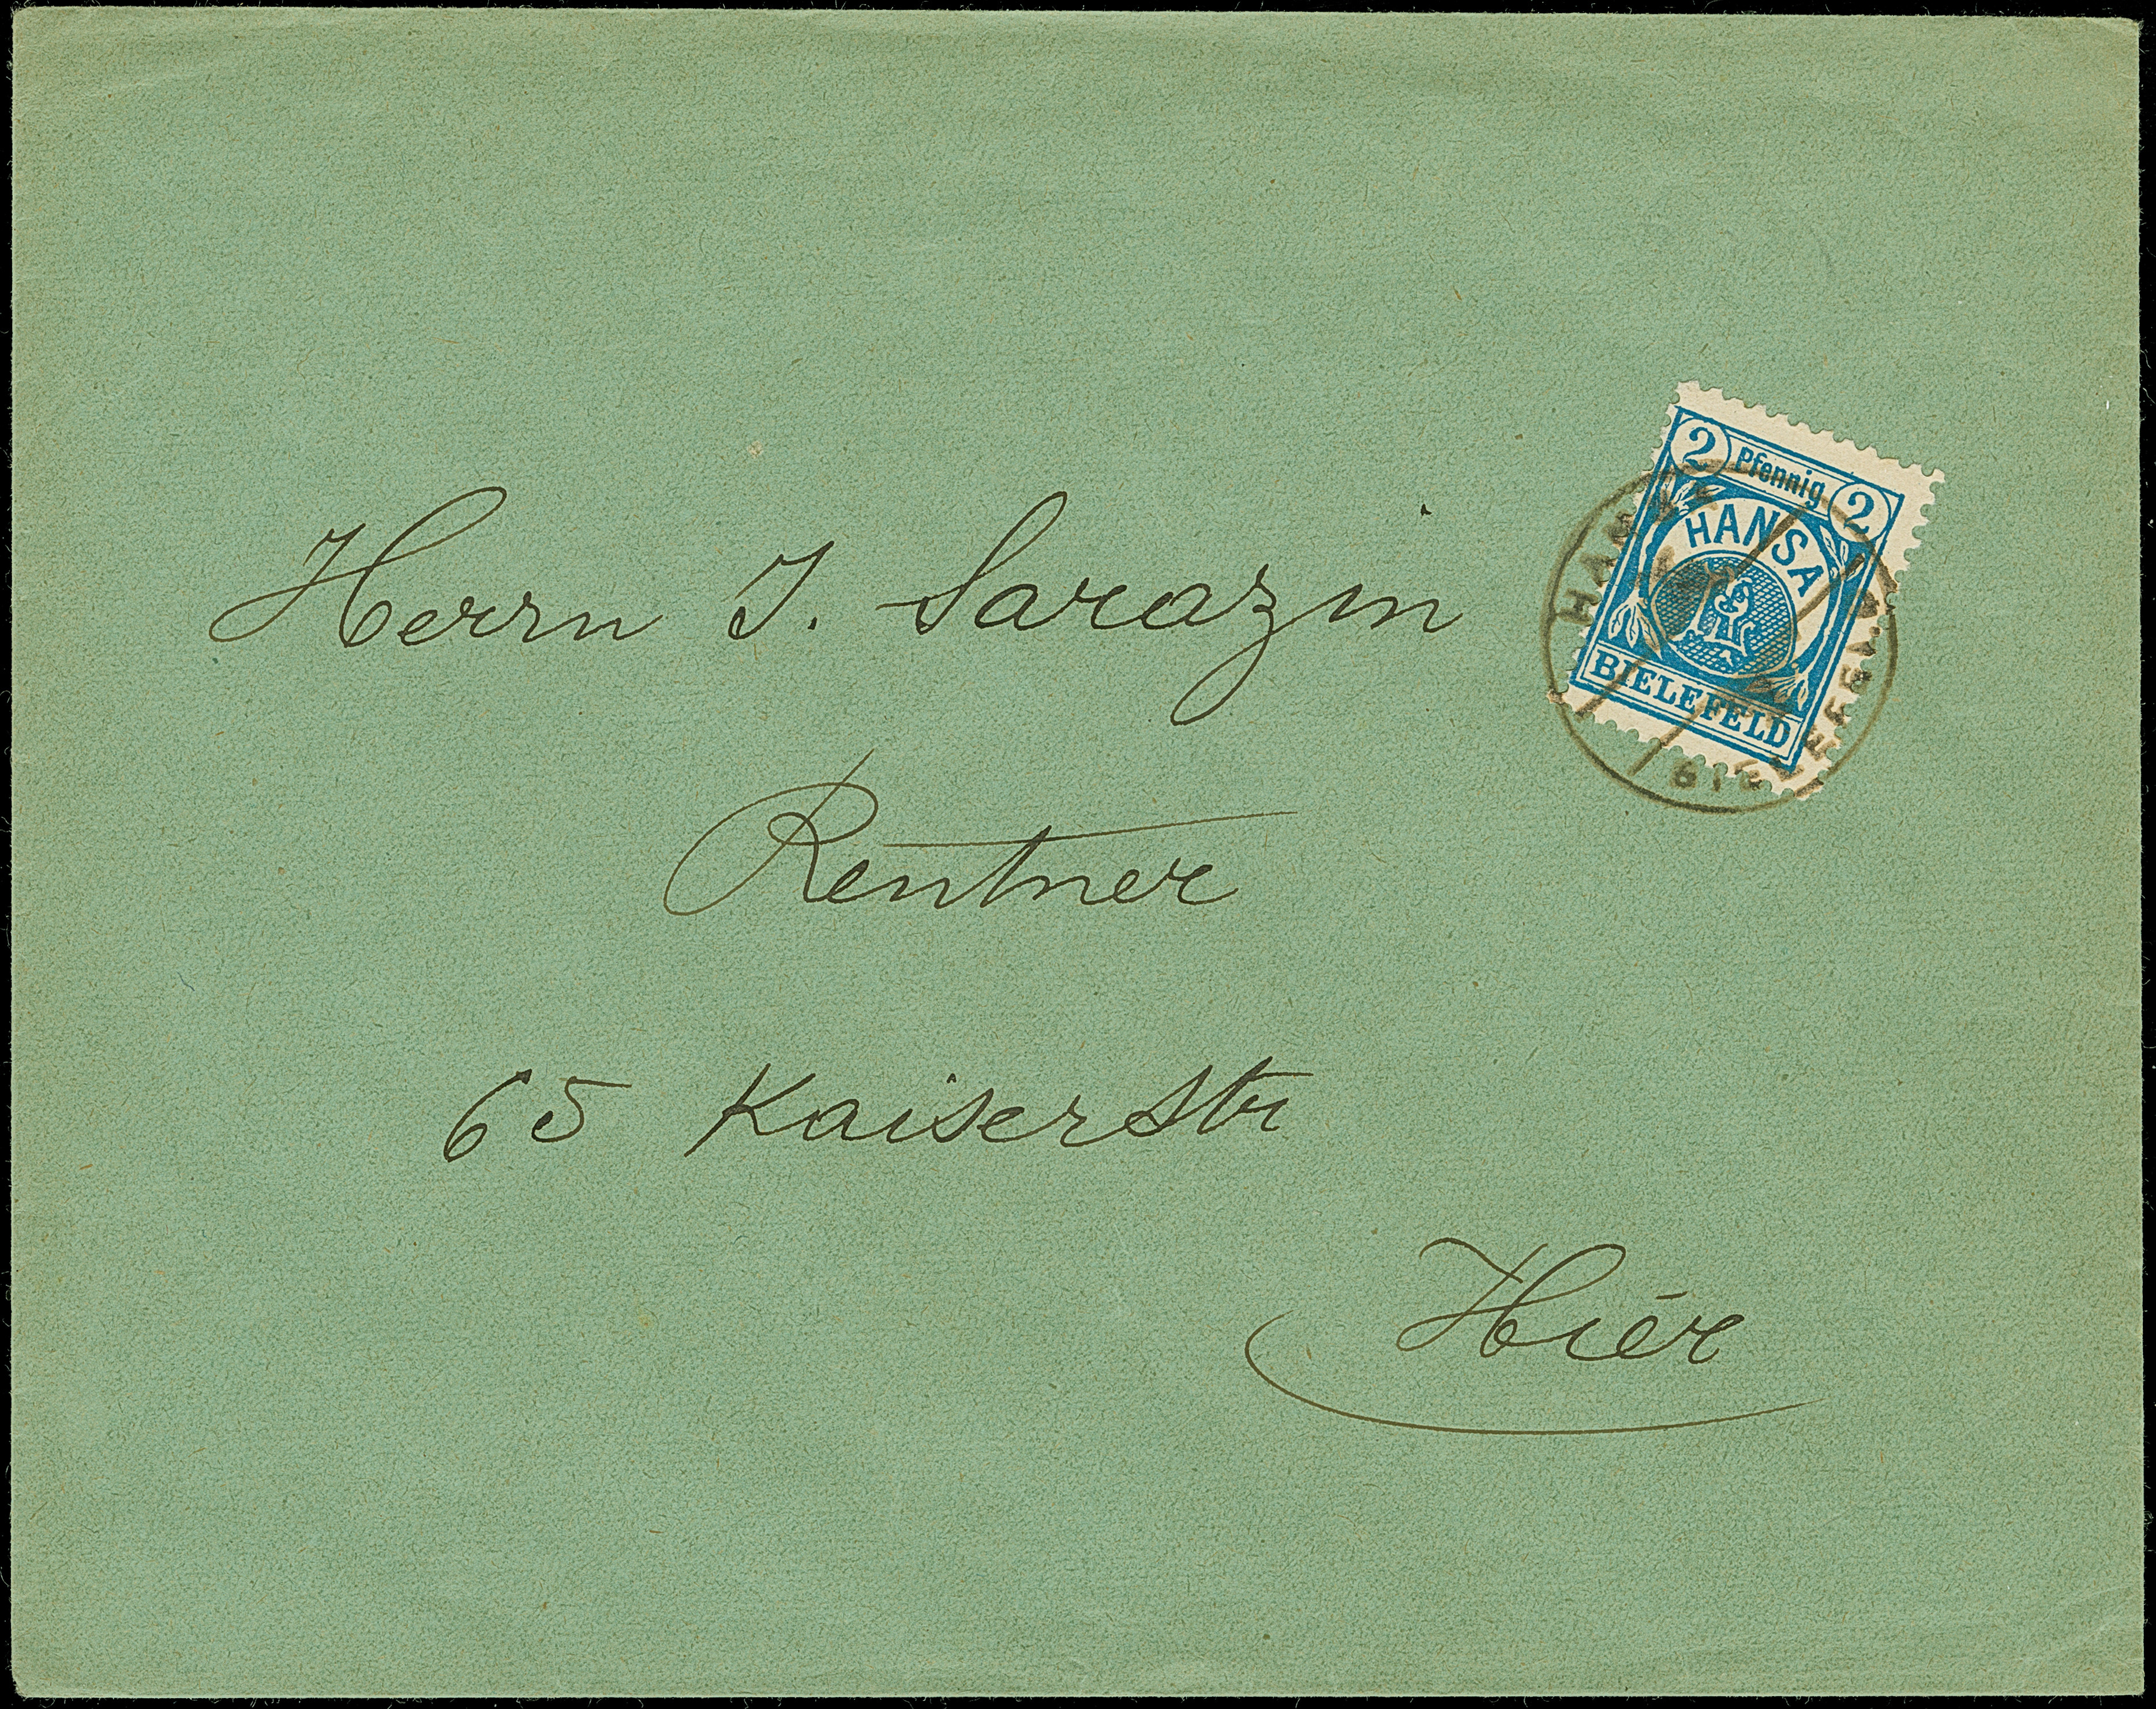 2 Pfennig 2
HANSA
BIELEFELD
Herrn J. Sarazin
Rentner
65 Kaiserstr
Hier